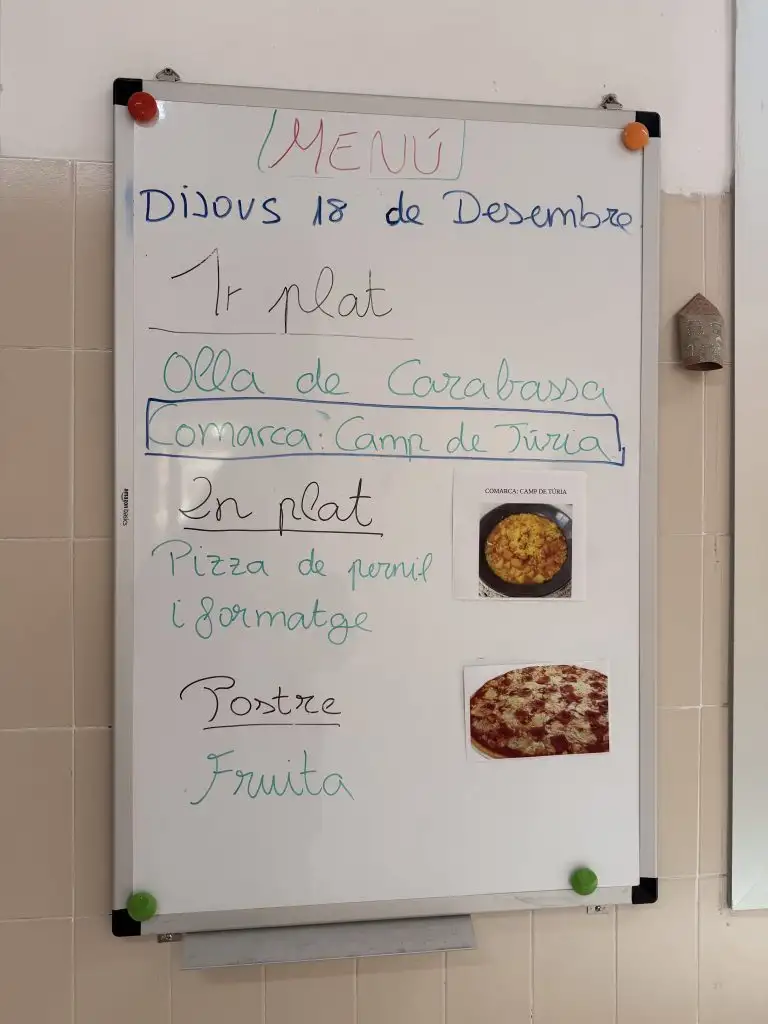 MENÚ
DiJOUS 18 de Desembre
1r plat
Olla de Carabassa
Comarca: Camp de Túria
2n plat
COMARCA: CAMP DE TÚRIA
Pizza de pernil
i formatge
Postre
Fruita
amazon basics